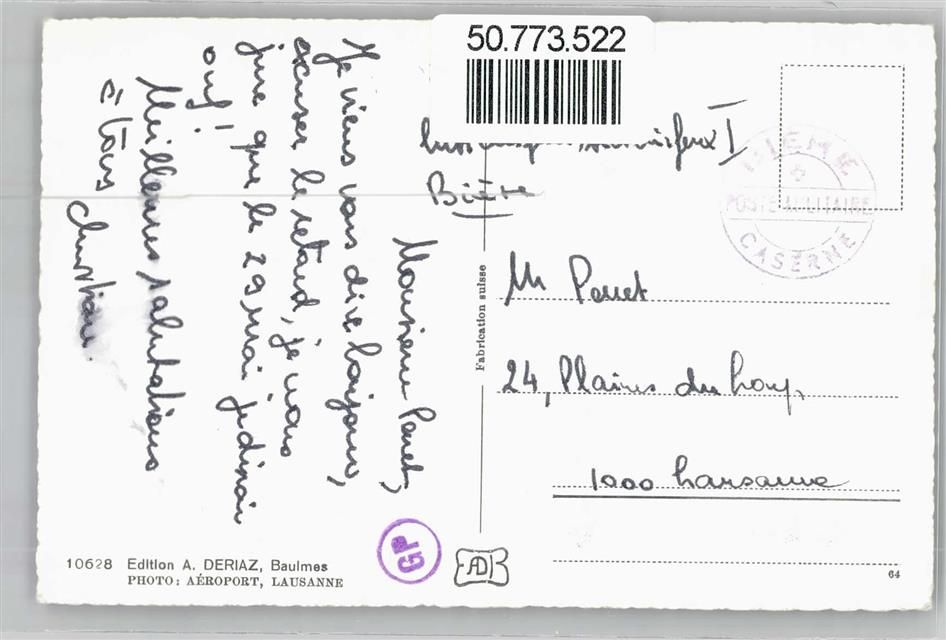 50.773.522
Monsieur Perret,
Je viens vous dire bonjour,
excuser le retard, je vous
jure que le 29 mai je dirai
ouf!
Meilleures salutations
à tous
Christian.
I
Bière
PAYERNE
POSTE MILITAIRE
CASERNE
Mr Perret
24, Plaines du Loup
1000 Lausanne
Fabrication suisse
GP
AD
10628 Edition A. DERIAZ, Baulmes
PHOTO: AÉROPORT, LAUSANNE
64